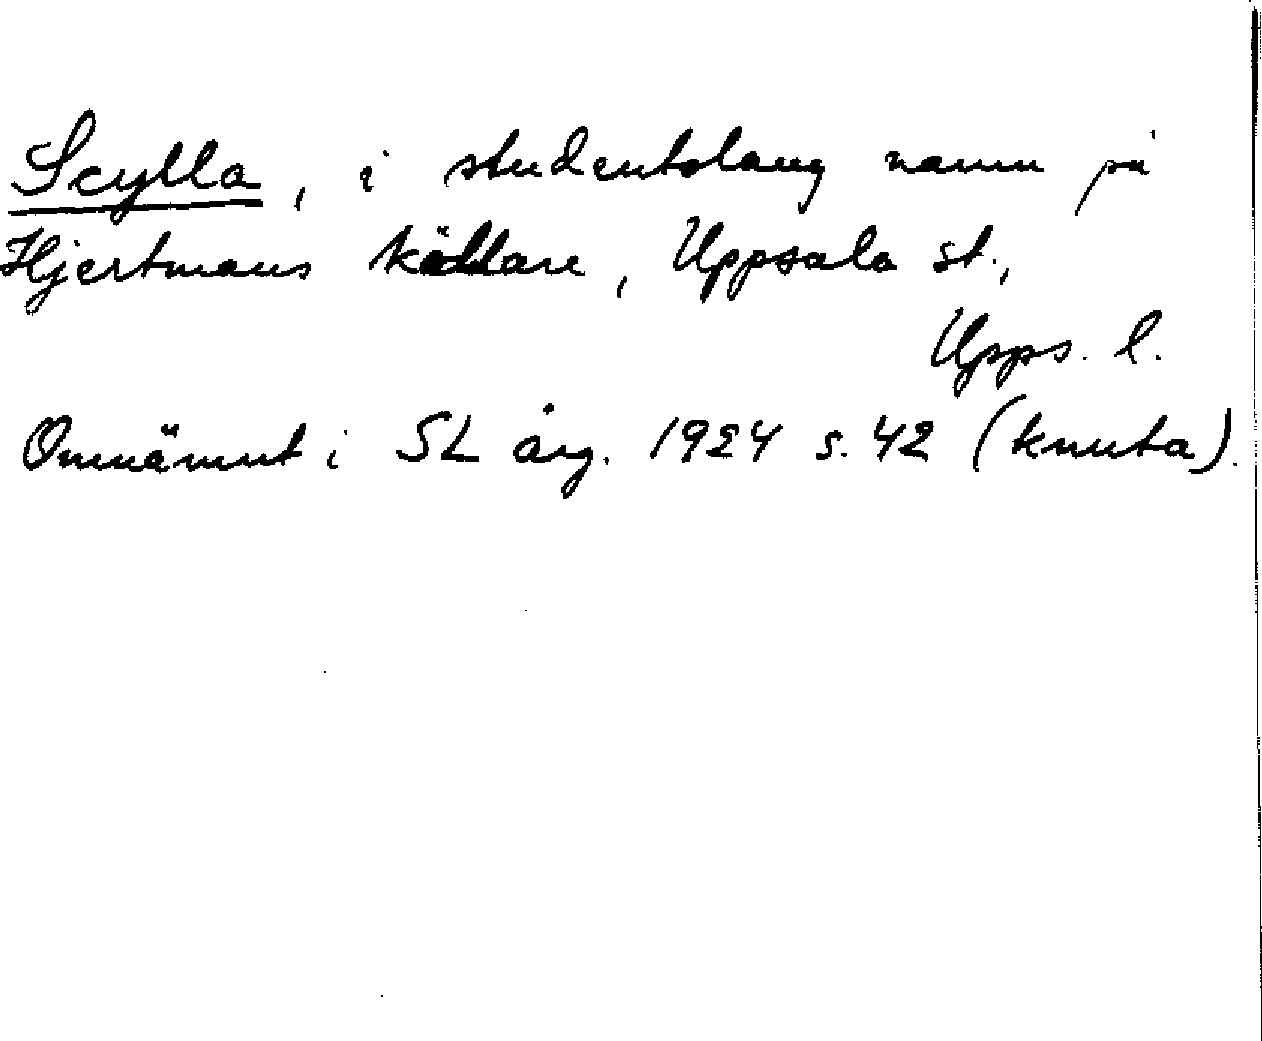 Scylla, i studentslang namn på
Hjertmans källare, Uppsala st.,
Upps. l.
Omnämnt i SL årg. 1924 s. 42 (knuta).